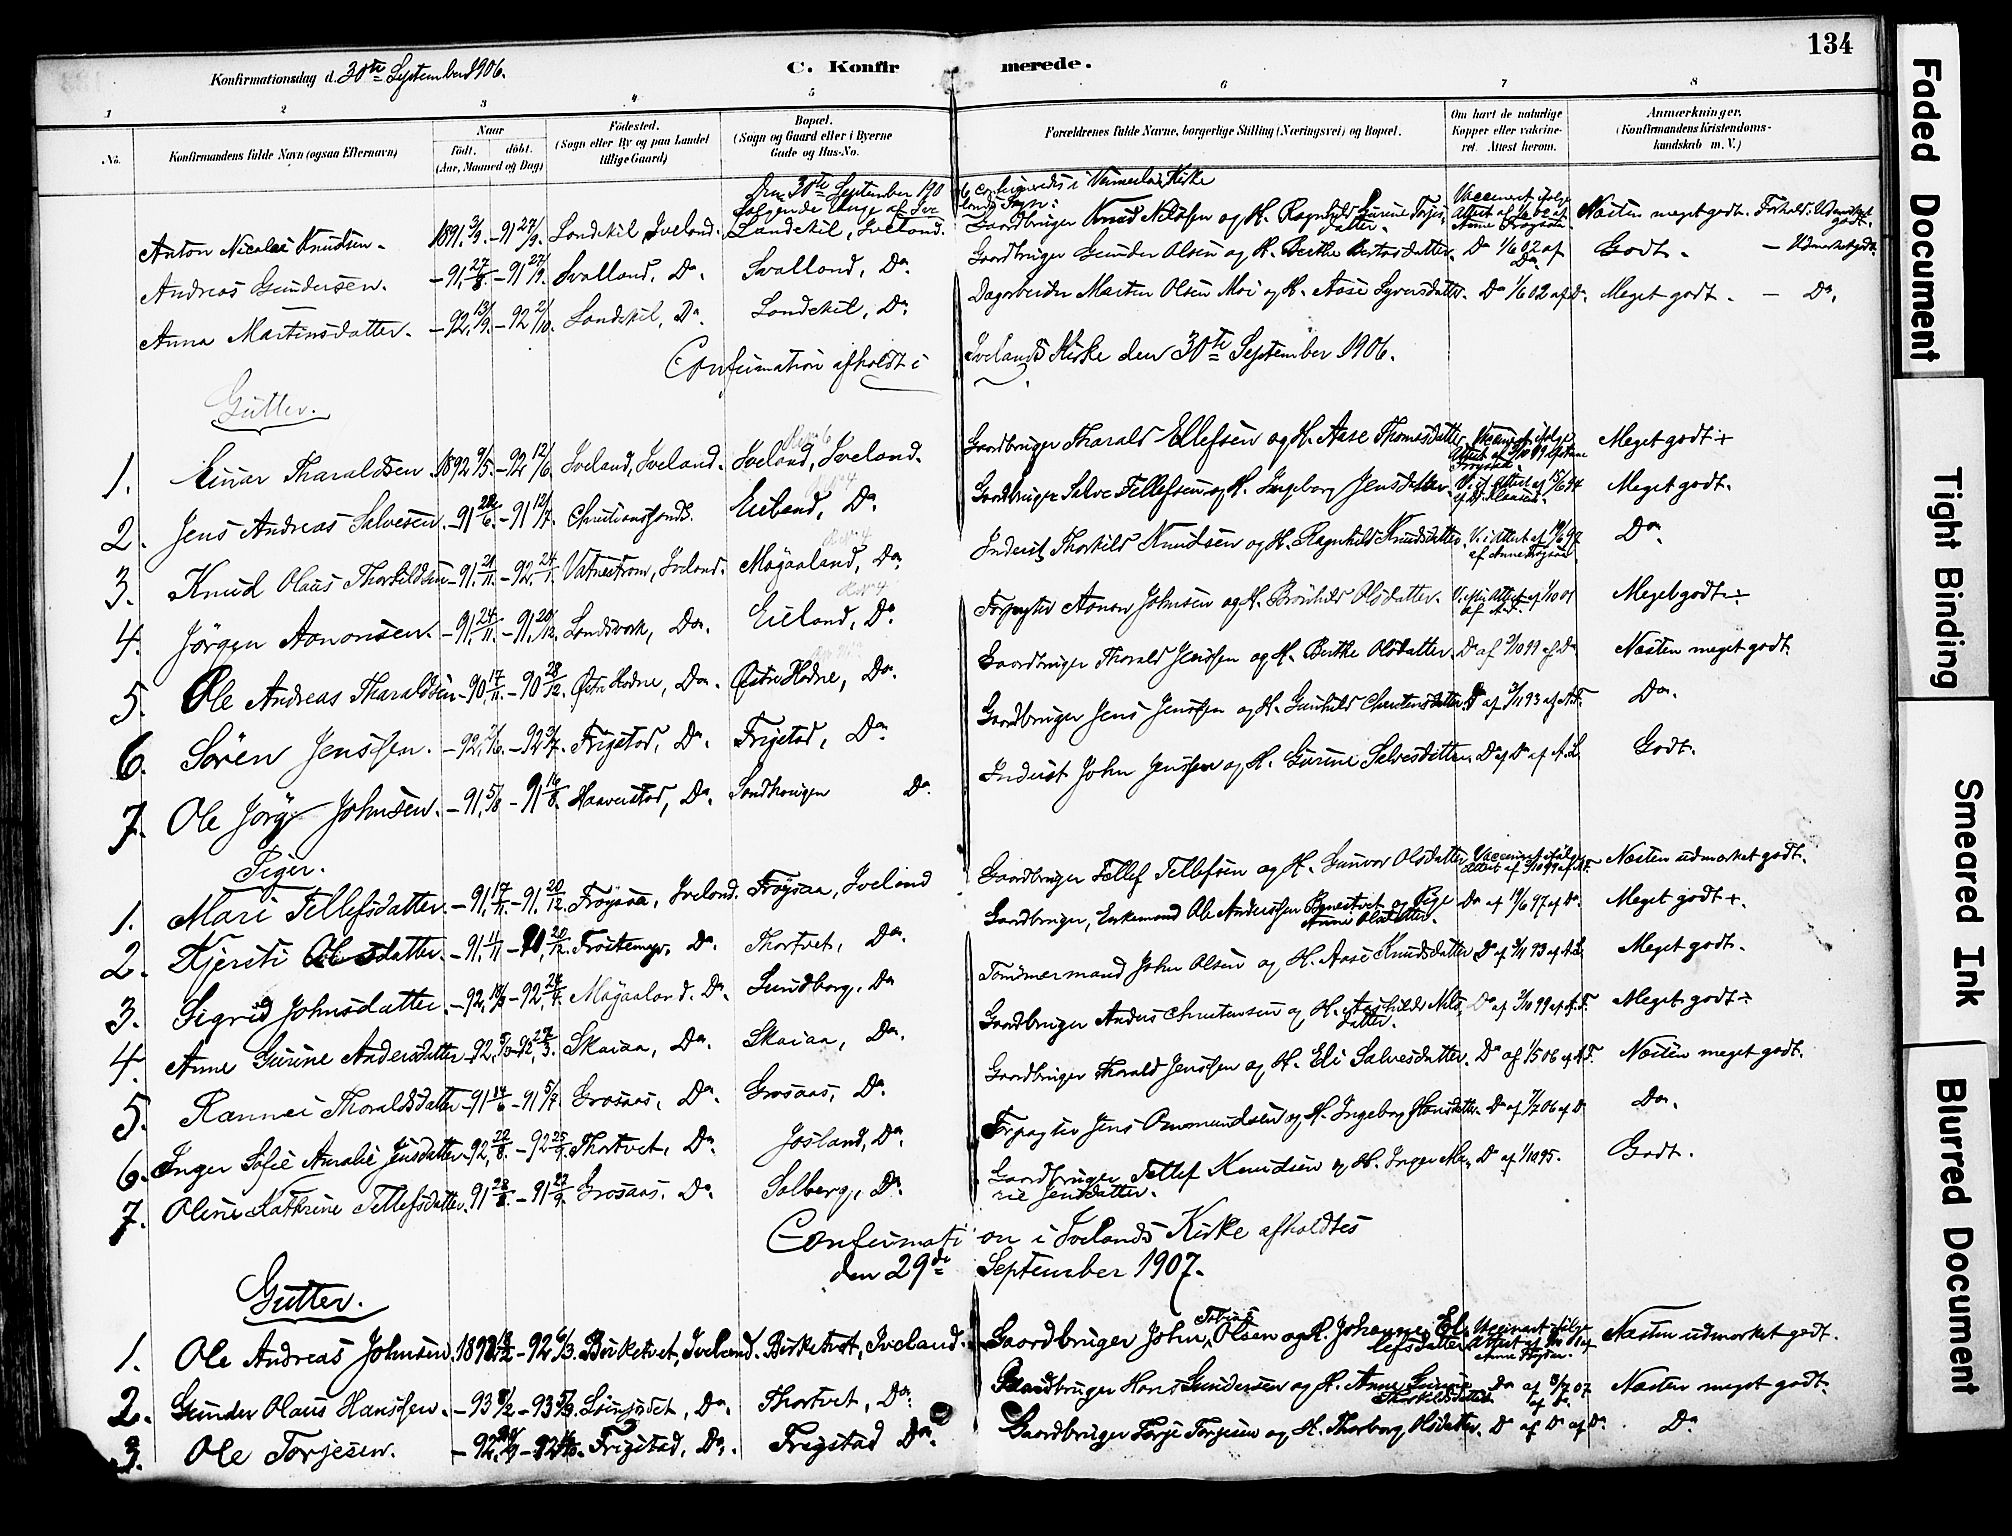 134
Konfirmationsdag d. 30te September 1906.
C. Konfirmerede.
1 2 3 4 5 6 7 8
No. Konfirmandens fulde Navn (ogsaa Efternavn) Naar født. døbt. (Aar, Maaned og Dag) Fødested. (Sogn eller By og paa Landet tillige Gaard) Bopæl. (Sogn og Gaard eller i Byerne Gade og Hus-No. Forældrenes fulde Navne, borgerlige Stilling (Næringsvei) og Bopæl. Om havt de naturlige Kopper eller vaccineret. Attest herom. Anmærkninger. (Konfirmandens Kristendomskundskab m. V.)
Den 30te September 1906 confirmeredes i Vennesla Kirke
følgende Unge af Ivelands Sogn:
Anton Nicolai Knudsen. 1891 3/9. -91 27/9. Landekil, Iveland. Landekil, Iveland. Gaardbruger Knud Nilssen og H. Ragnhild Gurine Torjesdatter. Næsten meget godt. Forhold. Udmærket godt.
Andreas Gundersen. -91 27/8. -91 27/9. Svalland, Do. Svalland, Do. Gaardbruger Gunder Olsen og H. Berthe Do 1/6 02 af Do. Godt. - Udmærket godt.
Anna Martinsdatter. -92 13/9. -92 2/10. Landekil, Do. Landekil, Do. Dagarbeider Martin Olsen Moi og H. Aase Syversdatter. Do 1/6 02 af Do. Meget godt. - Do.
Confirmation afholdt i Ivelands Kirke den 30te September 1906.
Gutter.
1. Einar Tharaldsen 1892 9/5. -92 12/6. Iveland, Iveland. Iveland, Iveland. Gaardbruger Tharald Ellefsen og H. Aase Thomesdatter Meget godt ÷
2. Jens Andreas Salvesen. -91 22/6. -91 12/7. Christianssand. Eieland, Do. Gaardbruger Salve Tellefsen og H. Ingeborg Jensdatter. Meget godt.
3. Knud Olaus Thorkildsen -91 21/11. -92 24/1. Vatnestrøm, Iveland. Møgaaland, Do. Inderst Thorkild Knudsen og H. Ragnhild Knudsdatter. Do.
4. Jørgen Aanonsen. -91 24/11. -91 20/12. Landsverk, Do. Eieland, Do. Forpagter Aanon Johnsen og H. Brønhild Olsdatter. Meget godt ÷
5. Ole Andreas Tharaldsen -90 17/11. -90 28/12. Østre Hodne, Do. Østre Hodne, Do. Gaardbruger Tharald Jenssen og H. Berthe Olsdatter. Næsten meget godt.
6. Søren Jenssen. -92 2/6. -92 3/7. Frigstad, Do. Frigstad, Do. Gaardbruger Jens Jenssen og H. Gunhild Christensdatter. Do.
7. Ole Jørg Johnsen. -91 5/8 -91 16/8. Haaverstad, Do. Sandhougen Do. Inderst John Jenssen og H. Gurine Salvesdatter. Godt.
Piger.
1. Mari Tellefsdatter. -91 17/11. -91 20/12. Frøysaa, Iveland. Frøysaa, Iveland Gaardbruger Tellef Tellefsen og H. Gunvor Olsdatter Næsten udmærket godt.
2. Kjersti Olesdatter. -91 4/11 -91 20/12. Do. Thortvet, Do. Gaardbruger, Enkemand Ole Anderssen og Pige Anne Olsdatter. Do af 19/6 97 af Do. Meget godt +.
3. Sigrid Johnsdatter. -92 -92 24/4. Møgaaland. Do. Sundborg, Do Tømmermand John Olsen og H. Aase Knudsdatter Meget godt.
4. Anne Gurine Andersdatter -92 -92 27/3. Skaiaa, Do. Skaiaa, Do. Gaardbruger Anders Christensen og H. Aashild Nilsdatter. Meget godt ÷
5. Rannei Tharaldsdatter -91 14/6 -91 5/7 Grosaas, Do. Grosaas, Do. Gaardbruger Tharald Jenssen og H. Eli Salvesdatter. Næsten meget godt.
6. Inger Sofie Amalie Jensdatter -92 22/8. -92 25/9. Thortvet, Do. Josland, Do. Forpagter Jens Ommundsen og H. Ingeborg Hansdatter. Do.
7. Oline Kathrine Tellefsdatter. 91 23/8. -91 27/9. Grosaas. Do. Solberg, Do. Gaardbruger Tellef Knudsen og H. Inger Marie Jensdatter. Godt.
Confirmation i Ivelands Kirke afholdtes
den 29de September 1907.
Gutter.
1. Ole Andreas Johnsen. Birketvet, Iveland. Birketvet, Iveland. Gaardbruger John Tobias Olsen og H. Johanne Ellefsdatter Næsten udmærket godt.
2. Gunder Olaus Hanssen. Do. Thortvet, Do. Gaardbruger Hans Gundersen og H. Anne Gurine Thorkildsdatter. Næsten meget godt.
3. Ole Torjesen. Frigstad, Do. Frigstad Do. Gaardbruger Torje Torjesen og H. Thorborg Olsdatter. Do af Do af Do. Do.
Faded Document
Tight Binding
Smeared Ink
Blurred Document